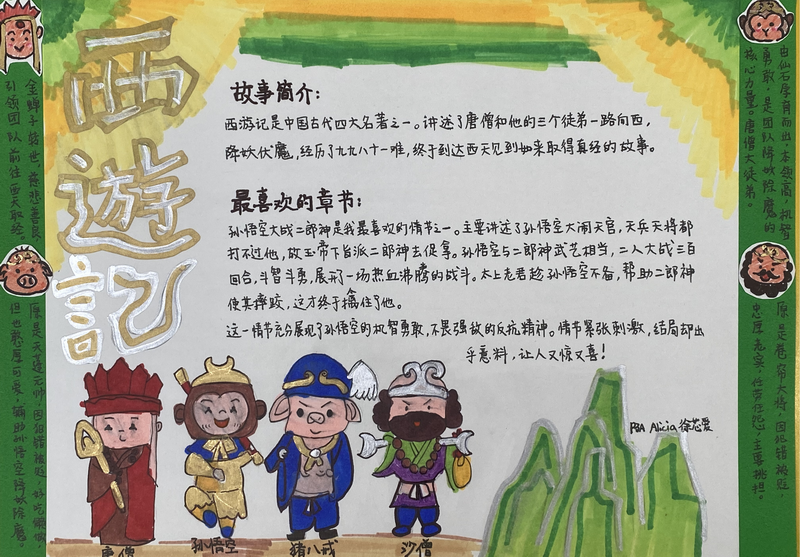 西遊記
故事简介：
西游记是中国古代四大名著之一。讲述了唐僧和他的三个徒弟一路向西，
降妖伏魔，经历了九九八十一难，终于到达西天见到如来取得真经的故事。
最喜欢的章节：
孙悟空大战二郎神是我最喜欢的情节之一。主要讲述了孙悟空大闹天宫，天兵天将都
打不过他，故玉帝下旨派二郎神去捉拿。孙悟空与二郎神武艺相当，二人大战三百
回合，斗智斗勇，展开了一场热血沸腾的战斗。太上老君趁孙悟空不备，帮助二郎神
使其摔跤，这才终于擒住了他。
这一情节充分展现了孙悟空的机智勇敢，不畏强敌的反抗精神。情节紧张刺激，结局却出
乎意料，让人又惊又喜！
金蝉子转世，慈悲善良
引领团队前往西天取经。
原是天蓬元帅，因犯错被贬，好吃懒做
但也憨厚可爱，辅助孙悟空降妖除魔。
由仙石孕育而出，本领高，机智
勇敢，是团队降妖除魔的
核心力量。唐僧大徒弟。
原是卷帘大将，因犯错被贬，
忠厚老实，任劳任怨，主要挑担。
P5A Alicia 徐芯爱
唐僧
孙悟空
猪八戒
沙僧